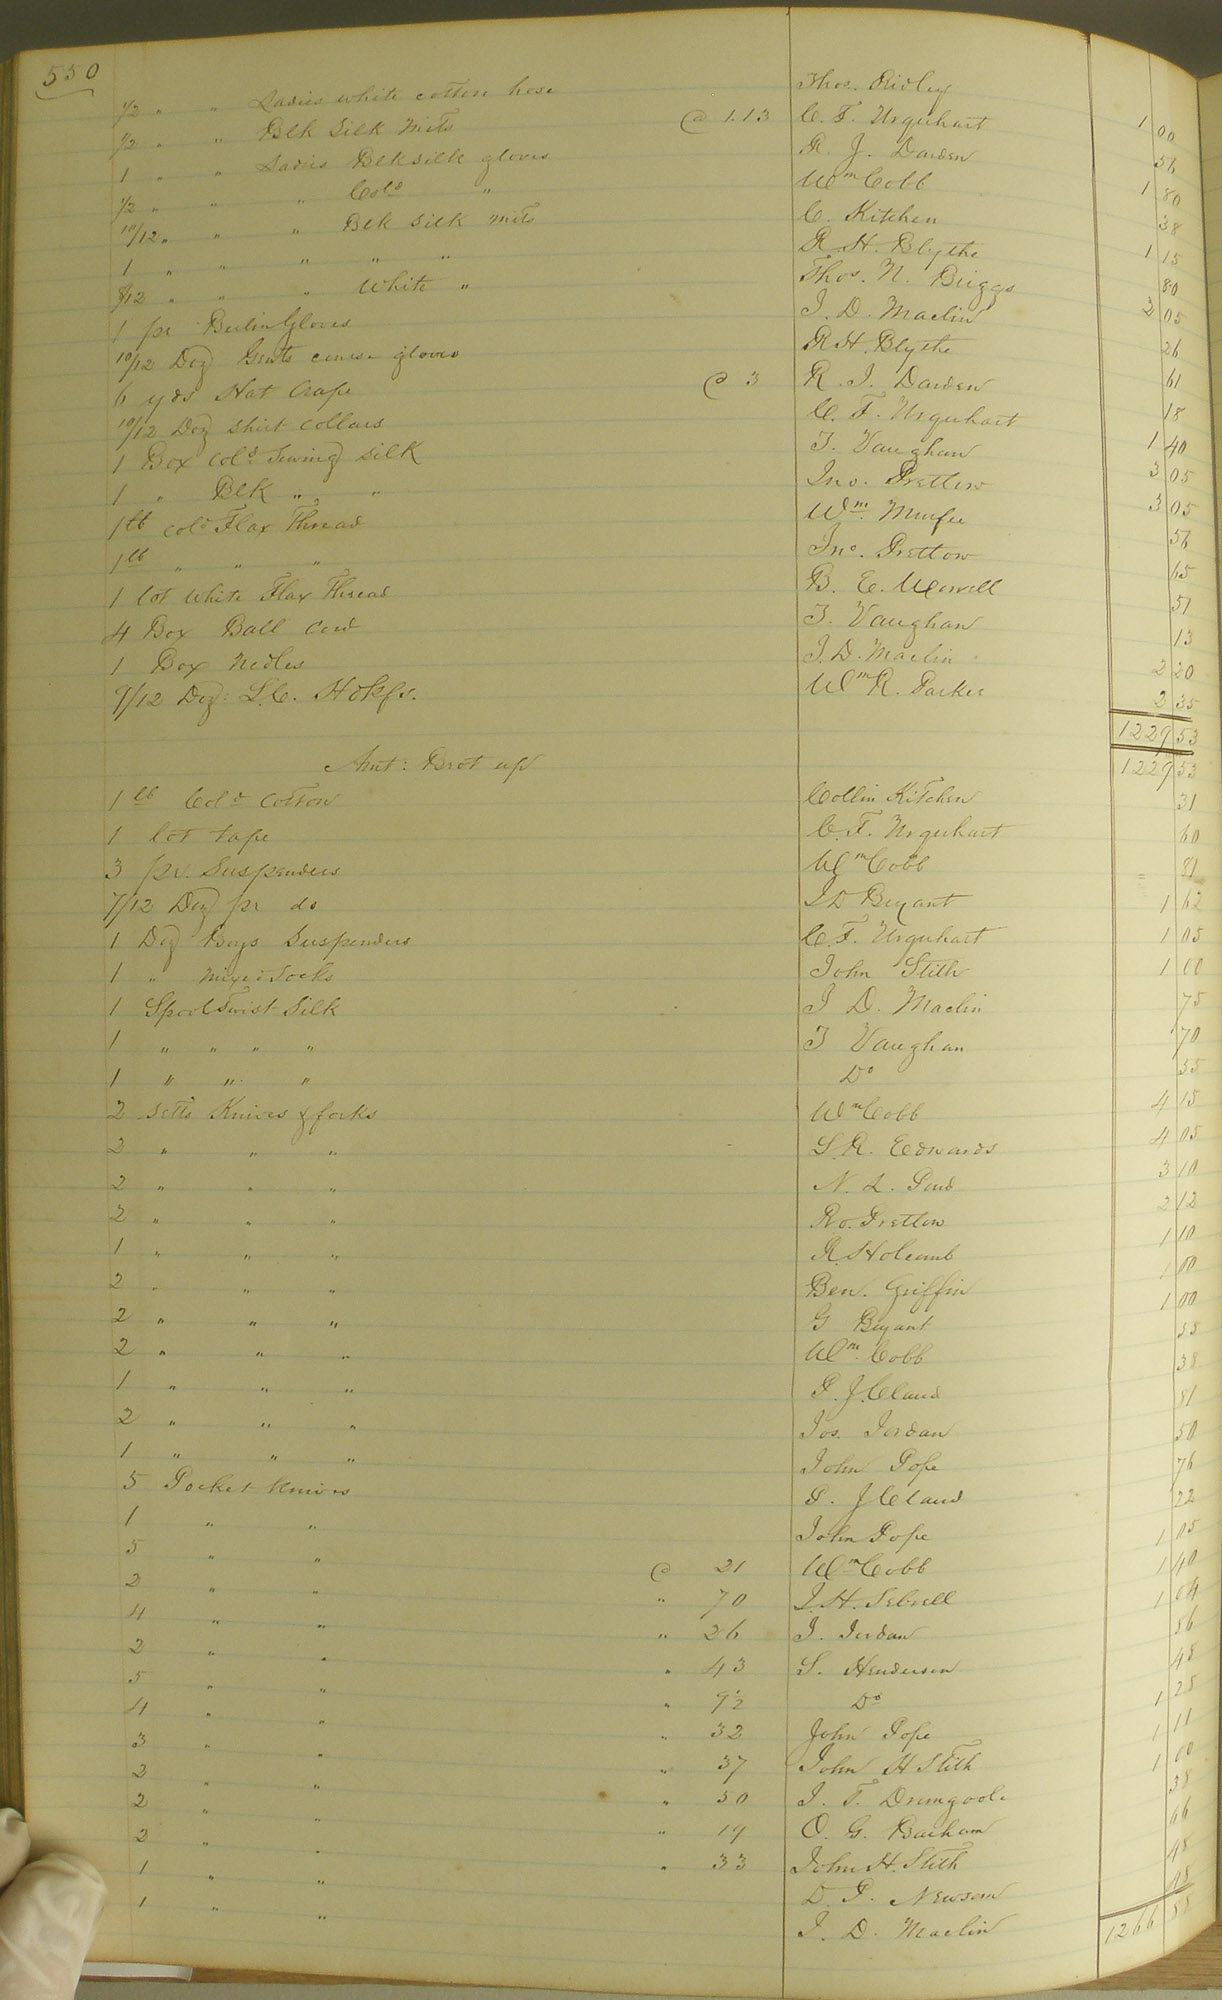 550
1/2 " " Ladies white cotton hose Thos. Ridley 1 00
1/2 " " Blk Silk Mits @ 1.13 C. F. Urquhart 56
1 " " Ladies Blk silk gloves R. J. Darden 1 80
1/2 " " " Cold " Wm Cobb 38
10/12 " " " Blk Silk Mits C. Kitchen 1 15
1 " " " " " R. H. Blythe 80
9/12 " " " White " Thos. N. Briggs 2 05
1 pr Berlin Gloves J. D. Maclin 26
10/12 Doz Gents coarse gloves R H. Blythe 61
6 yds Hat Crape @ 3 R. J. Darden 18
10/12 Doz Shirt Collars C. F. Urquhart 1 40
1 Box Cold Sewing Silk T. Vaughan 3 05
1 " Blk " " Jno. Pretlow 3 05
1 lb cold Flax Thread Wm. Murfee 56
1 lb " " " Jno. Pretlow 65
1 lot White Flax Thread B. E. Worrell 51
4 Box Ball Cord T. Vaughan 13
1 Box Nedles J. D. Maclin 2 20
9/12 Doz: L.C. Hdkfs. Wm R. Parker 2 35
1229 53
Amt: Brot up 1229 53
1 lb Cold Cotton Collin Kitchen 31
1 lot tape C. F. Urquhart 60
3 pr. Suspenders Wm Cobb 81
7/12 Doz pr do J D Bryant 1 62
1 Doz Boys Suspenders C. F. Urquhart 1 05
1 " mixed Socks John Stith 1 00
1 Spool Twist Silk J D. Maclin 75
1 " " " " T Vaughan 70
1 " " " Do 55
2 setts Knives & forks Wm Cobb 4 15
2 " " " S. R. Edwards 4 05
2 " " " N. L. Pond 3 10
2 " " " Ro. Pretlow 2 12
1 " " " R Holcomb 1 10
2 " " " Ben. Griffin 1 00
2 " " " G Bryant 1 00
2 " " " Wm. Cobb 55
1 " " " P. J. Claud 38
2 " " " Jos. Jordan 81
1 " " " John Pope 50
5 Pocket Knives P. J Claud 76
1 " " John Pope 22
5 " " @ 21 Wm Cobb 1 05
2 " " " 70 J. H. Sebrell 1 40
4 " " " 26 J. Jordan 1 04
2 " " " 43 S. Henderson 86
5 " " " 9½ Do 48
4 " " " 32 John Pope 1 28
3 " " " 37 John H Stith 1 11
2 " " " 50 J. T. Dromgoole 1 00
2 " " " 19 O. G. Barham 38
2 " " " 33 John H. Stith 66
1 " " D. P. Newsom 48
1 " " J. D. Maclin
1266